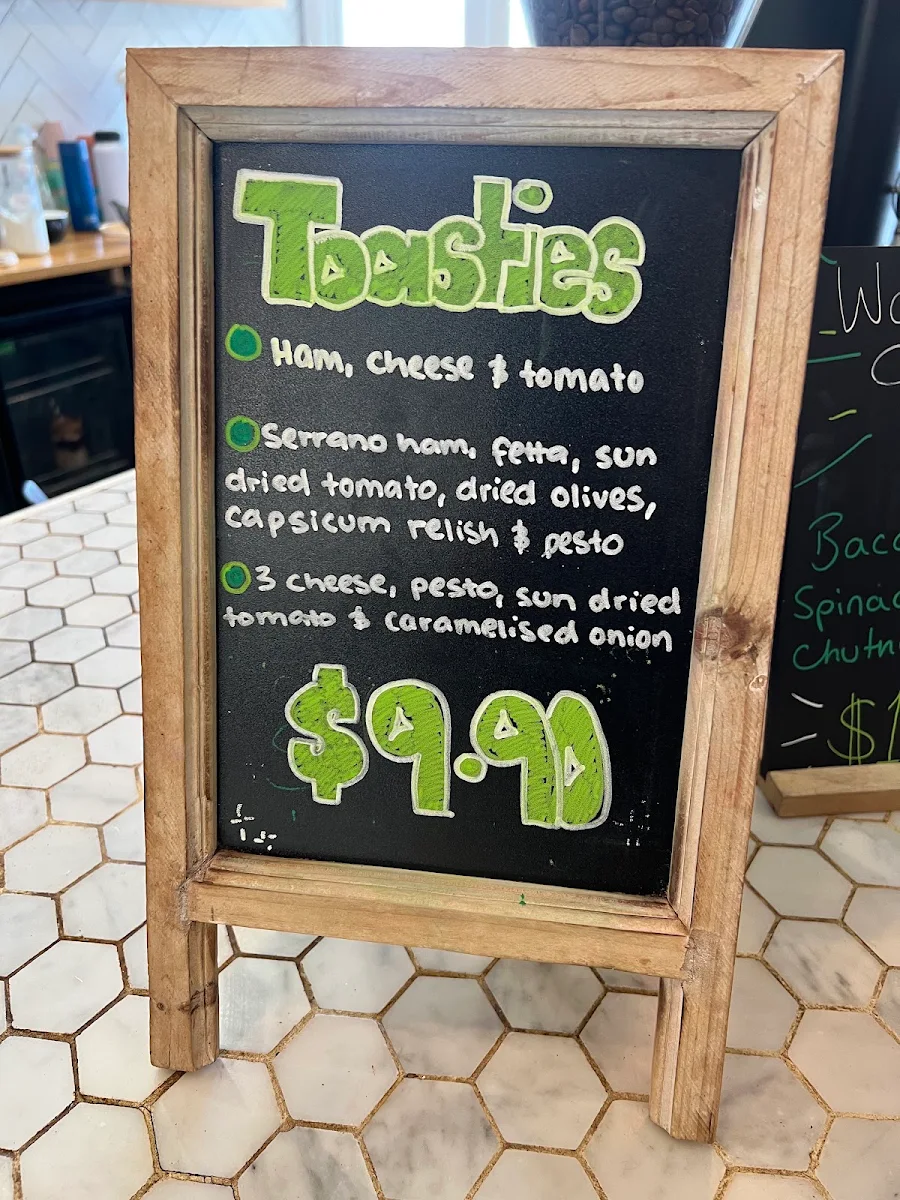 Toasties
Ham, cheese & tomato
Serrano ham, fetta, sun
dried tomato, dried olives,
capsicum relish & pesto
3 cheese, pesto, sun dried
tomato & caramelised onion
$9.90